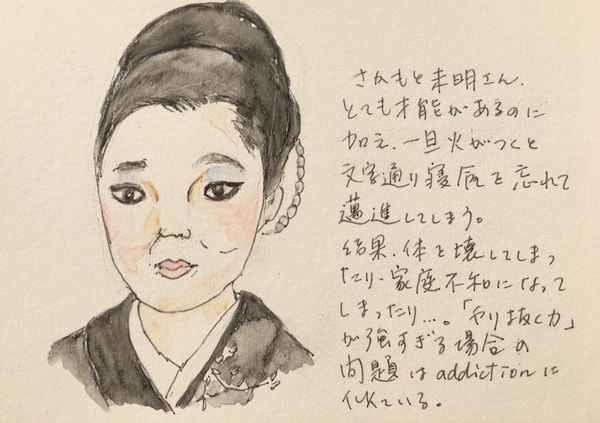 さかもと未明さん.
とても才能があるのに
加え、一旦火がつくと
文字通り寝食を忘れて
邁進してしまう。
結果、体を壊してしまっ
たり、家庭不和になって
しまったり…。「やり抜く力」
が強すぎる場合の
問題はaddictionに
似ている。